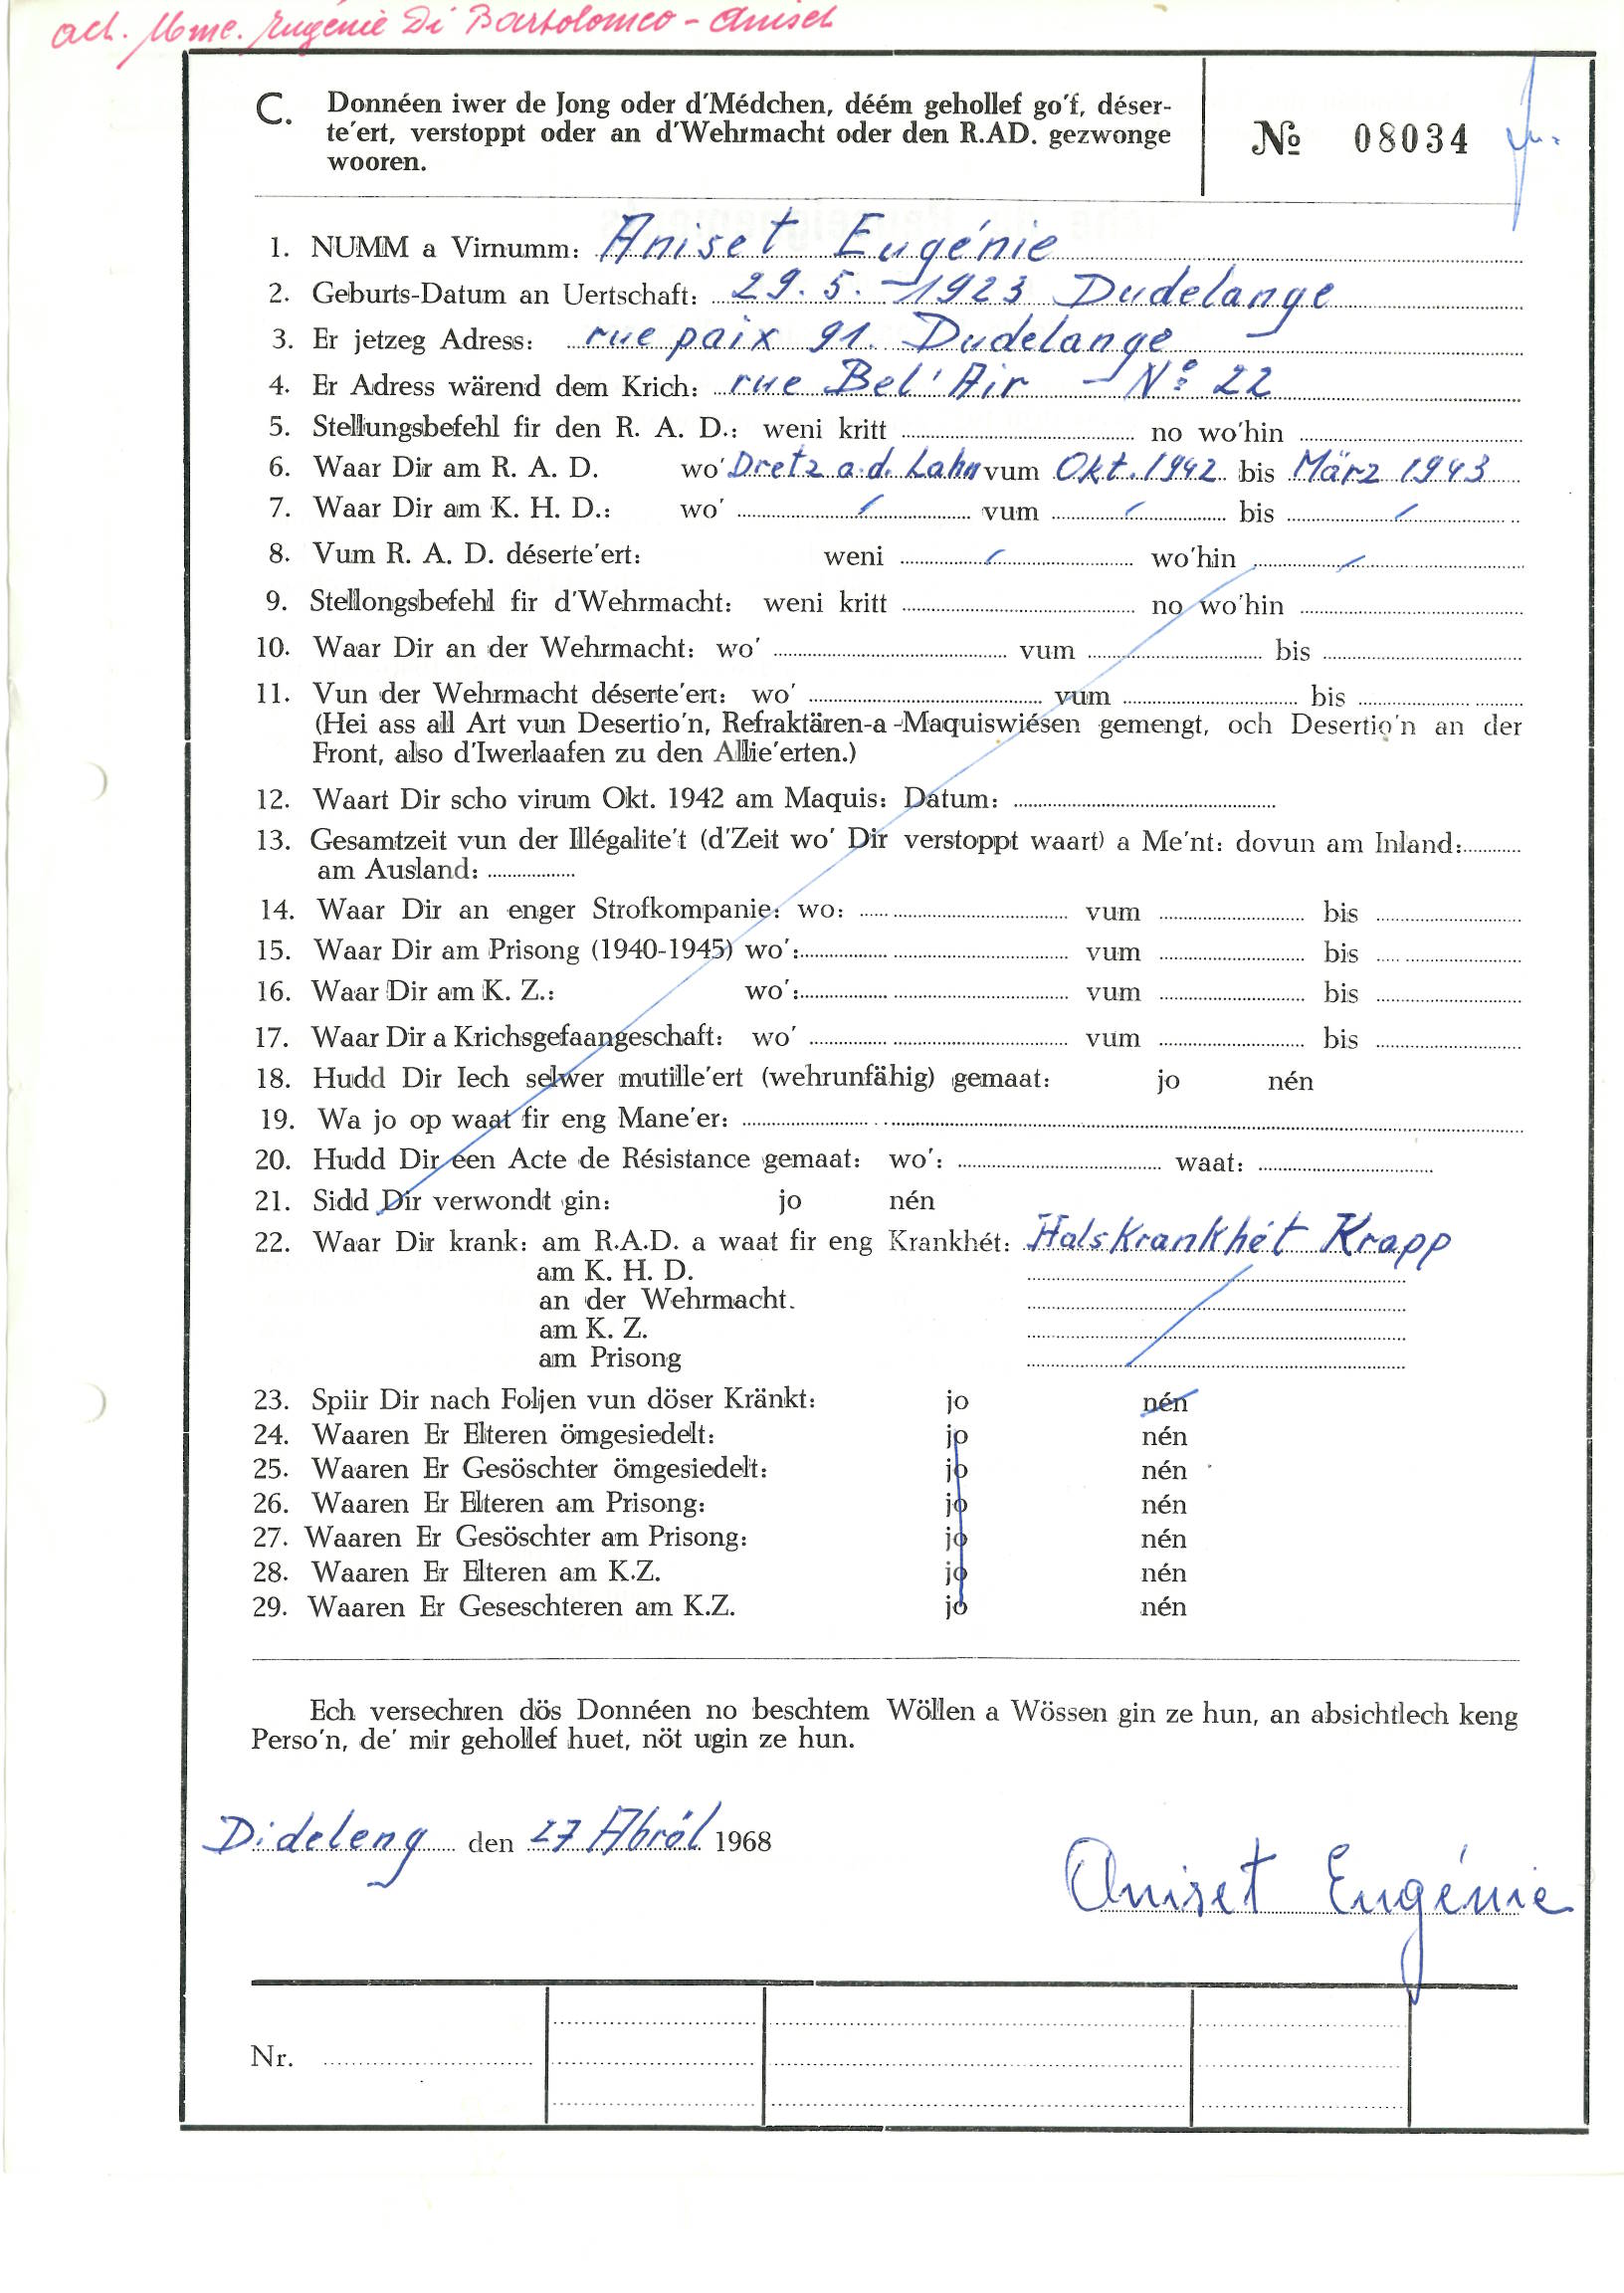 act. Mme. Eugénie Di Bartolomeo - Aniset
C. Donnéen iwer de Jong oder d'Médchen, déém gehollef go'f, déser-
te'ert, verstoppt oder an d'Wehrmacht oder den R.AD. gezwonge
wooren.
No 08034
1. NUMM a Virnumm: Aniset Eugénie
2. Geburts-Datum an Uertschaft: 29.5.-1923 Dudelange
3. Er jetzeg Adress: rue paix 91. Dudelange
4. Er Adress wärend dem Krich: rue Bel'Air - No: 22
5. Stellungsbefehl fir den R. A. D.: weni kritt no wo'hin
6. Waar Dir am R. A. D. wo' Dretz a.d. Lahn vum Okt. 1942 bis März 1943
7. Waar Dir am K. H. D.: wo' vum bis
8. Vum R. A. D. déserte'ert: weni wo'hin
9. Stellongsbefehl fir d'Wehrmacht: weni kritt no wo'hin
10. Waar Dir an der Wehrmacht: wo' vum bis
11. Vun der Wehrmacht déserte'ert: wo' vum bis
(Hei ass all Art vun Desertio'n, Refraktären-a-Maquiswiésen gemengt, och Desertio'n an der
Front, also d'Iwerlaafen zu den Allie'erten.)
12. Waart Dir scho virum Okt. 1942 am Maquis: Datum:
13. Gesamtzeit vun der Illégalite't (d'Zeit wo' Dir verstoppt waart) a Me'nt: dovun am Inland:
am Ausland:
14. Waar Dir an enger Strofkompanie: wo: vum bis
15. Waar Dir am Prisong (1940-1945) wo': vum bis
16. Waar Dir am K. Z.: wo': vum bis
17. Waar Dir a Krichsgefaangeschaft: wo' vum bis
18. Hudd Dir Iech selwer mutille'ert (wehrunfähig) gemaat: jo nén
19. Wa jo op waat fir eng Mane'er:
20. Hudd Dir een Acte de Résistance gemaat: wo': waat:
21. Sidd Dir verwondt gin: jo nén
22. Waar Dir krank: am R.A.D. a waat fir eng Krankhét: Halskrankhét Krapp
am K. H. D.
an der Wehrmacht.
am K. Z.
am Prisong
23. Spiir Dir nach Foljen vun döser Kränkt: jo nén
24. Waaren Er Elteren ömgesiedelt: jo nén
25. Waaren Er Gesöschter ömgesiedelt: jo nén
26. Waaren Er Elteren am Prisong: jo nén
27. Waaren Er Gesöschter am Prisong: jo nén
28. Waaren Er Elteren am K.Z. jo nén
29. Waaren Er Geseschteren am K.Z. jo nén
Ech versechren dös Donnéen no beschtem Wöllen a Wössen gin ze hun, an absichtlech keng
Perso'n, de' mir gehollef huet, nöt ugin ze hun.
Dideleng den 27 Abröl 1968
Aniset Eugénie
Nr.